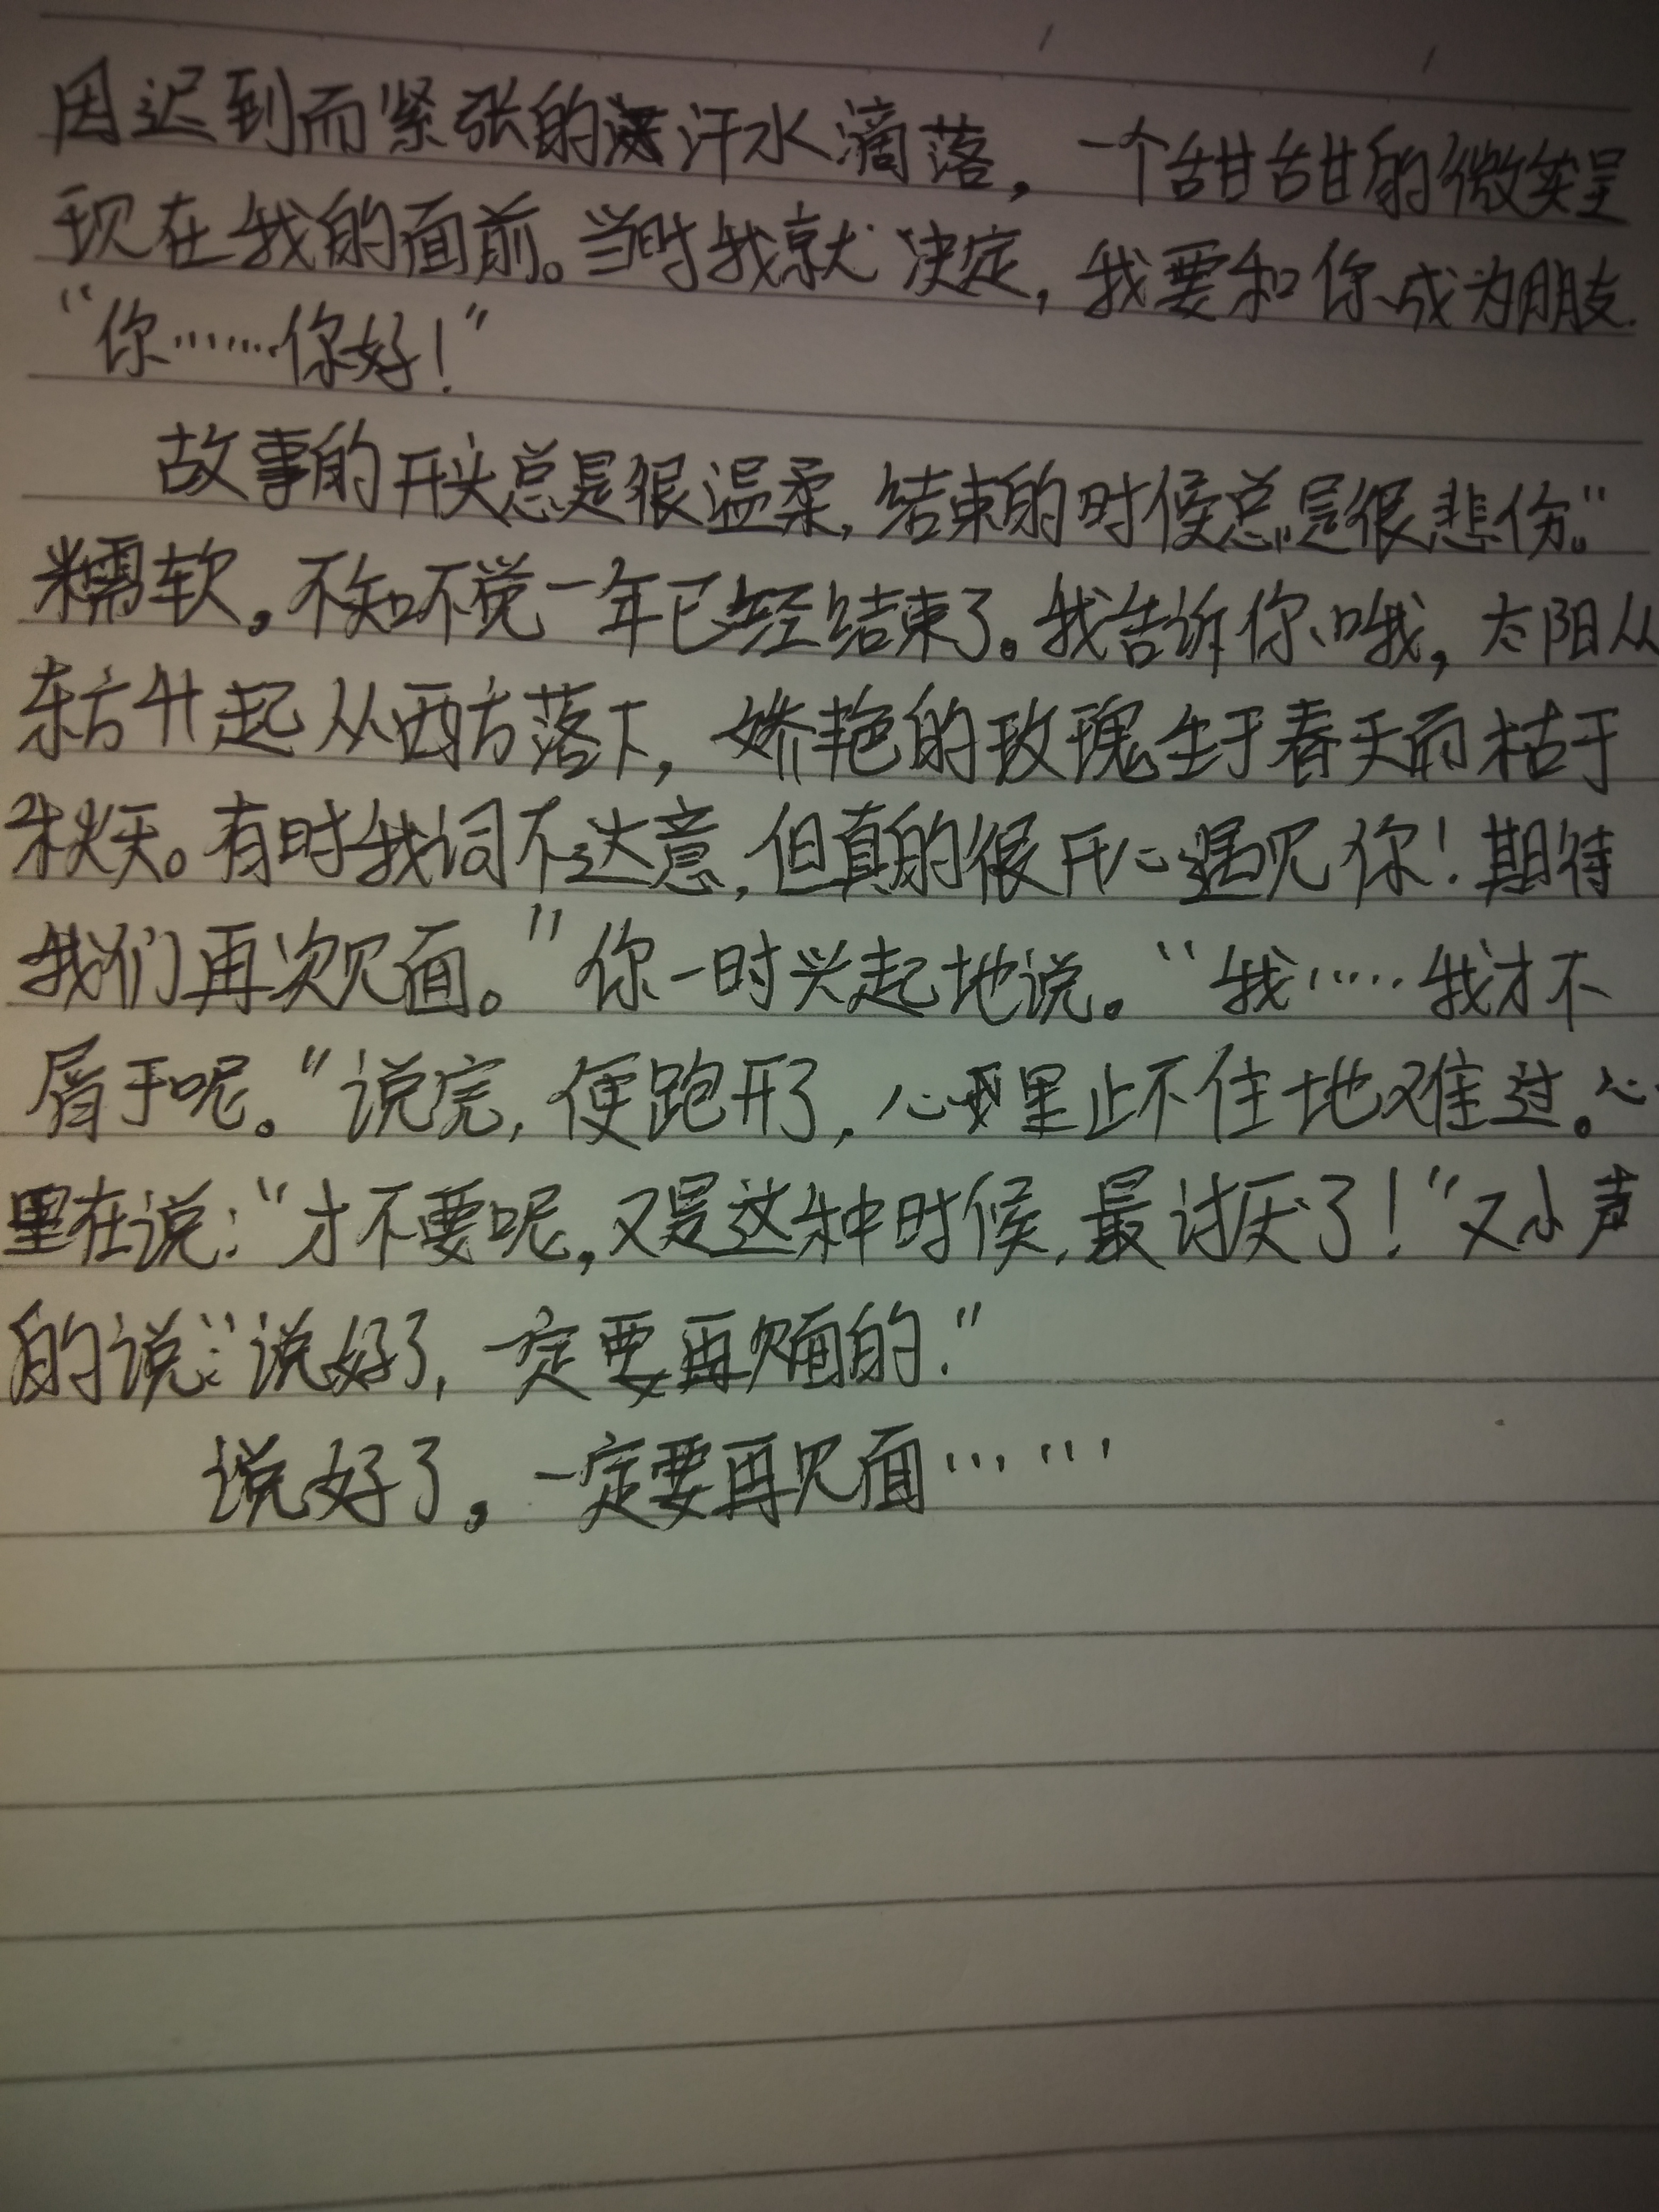 因迟到而紧张的汗水滴落，一个甜甜的微笑呈
现在我的面前。当时我就决定，我要和你成为朋友.
“你……你好！”
故事的开头总是很温柔，结束的时候总是很悲伤。“
糯软，不知不觉一年已经结束了。我告诉你哦，太阳从
东方升起从西方落下，娇艳的玫瑰生于春天而枯于
秋天。有时我词不达意，但真的很开心遇见你！期待
我们再次见面。”你一时兴起地说。“我……我才不
屑于呢。”说完，便跑开了，心里止不住地难过。心
里在说：“才不要呢，又是这种时候，最讨厌了！”又小声
的说：“说好了，一定要再见面的.”
说好了，一定要再见面……